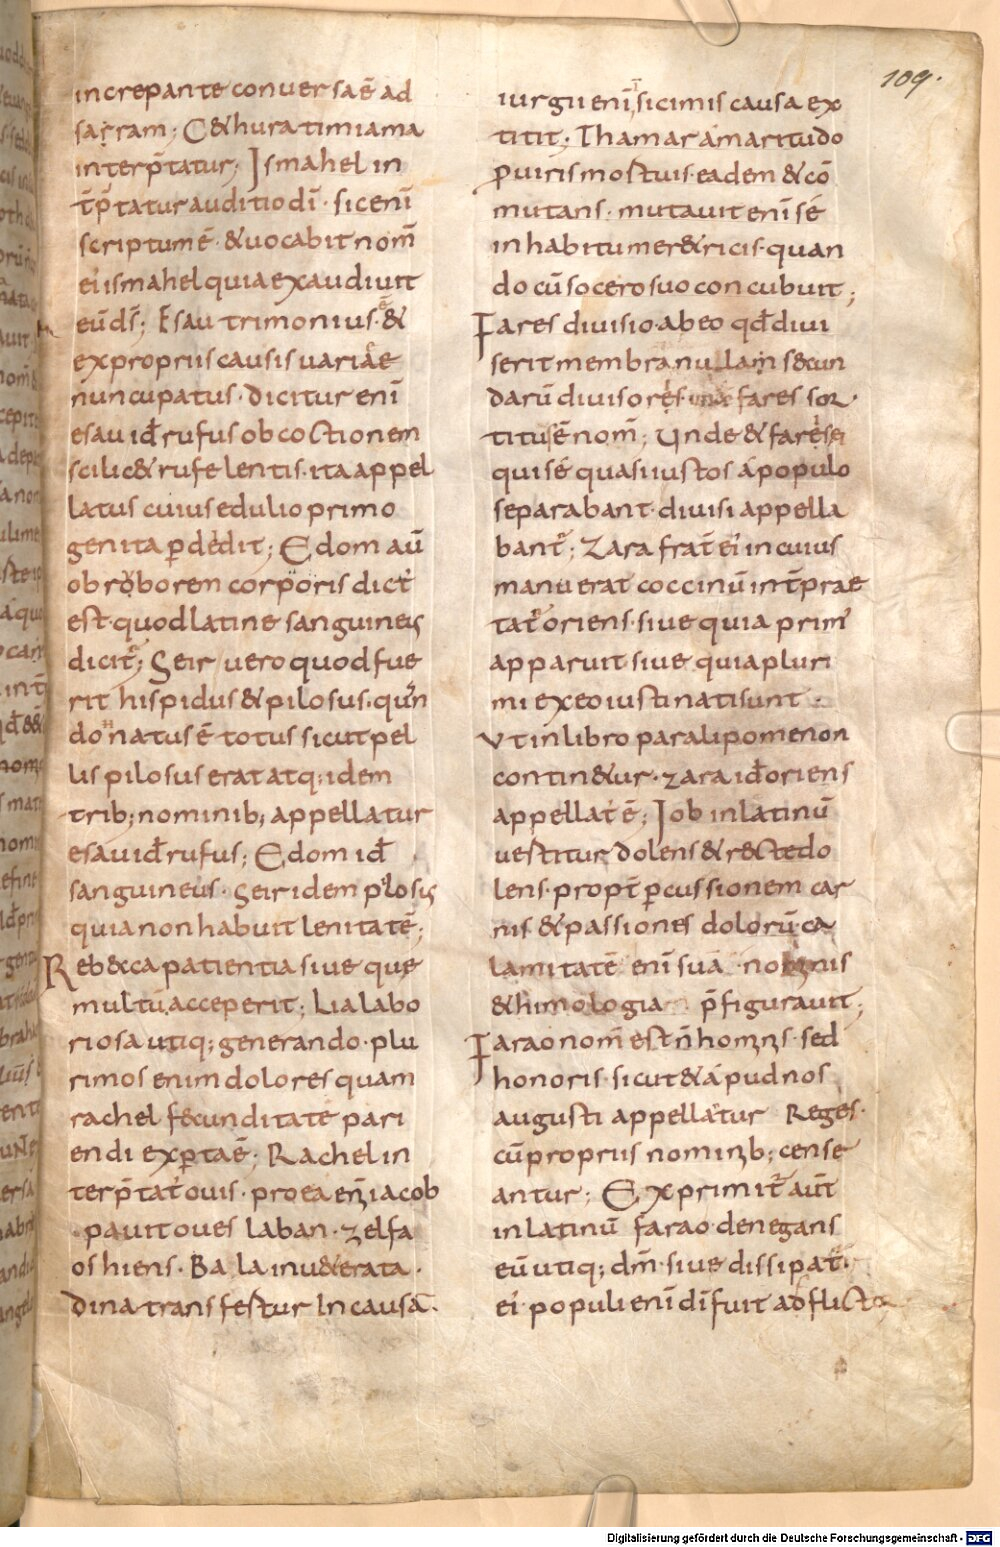 109.
increpante conuersaē ad
sarram; C&hura timiama
interp̄tatur; Ismahel in
t̄p̄tatur auditio dī· sic enī
scriptum ē· & uocabit nom̄
ei ismahel quia exaudiuit
eū ds̄; Esau trimonius ē· &
ex propriis causis uariae
nuncupatus· dicitur enī
esau id̄ rufus ob coctionem
scilic& rufe lentis· ita appel
latus cuius edulio primo
genita perdedit; Edom aū
ob roborem corporis dict'
est· quod latine sanguineus
dicit'; Seir uero quod fue
rit hispidus & pilosus· qn̄
do natus ē totus sicut pel
lis pilosus erat atq; idem
trib; nominib; appellatur
esau id̄ rufus; Edom id̄
sanguineus· Seir idem pilosus
quia non habuit lenitatē;
Rebecca patientia siue quę
multū acceperit; Lia labo
riosa utiq; generando· plu
rimos enim dolores quam
rachel fecunditate pari
endi expertaē; Rachel in
terp̄tat' ouis· pro ea enī iacob
pauit oues laban· zelfa
os hiens· Bala inu&erata·
Dina transfertur In causā·
iurgii enī, sicimis causa ex
titit· Thamar amaritudo
p uiris mortuis· eadem & cō
mutans· mutauit enī se
in habitu mer&ricis· quan
do cū socero suo concubuit;
Fares diuisio· ab eo qd̄ diui
serit membranulam secun
darū diuisores fares sor
titus ē nom̄; Unde & farisei
qui se quasi iustos a populo
separabant· diuisi appella
bant'; Zara frat̄ ei in cuius
manu erat coccinū int̄prae
tat' oriens· siue quia prim'
apparuit siue quia pluri
mi ex eo iusti nati sunt·
Ut in libro paralipomenon
contin&ur· zara id̄ oriens
appellat' ē; Iob in latinū
uestitur dolens & recte do
lens· propt̄ percussionem car
nis & passiones dolorū· ca
lamitatē enī suā nominis
& himologia p̄figurauit;
Farao nom̄ est n̄ hominis· sed
honoris· sicut & apud nos
augusti appellatur Reges·
cū propriis nominib; cense
antur; Exprimit' aūt
in latinū farao· denegans
eū utiq; dm̄· siue dissipat'·
ei populi enī dī fuit adflict
Digitalisierung gefördert durch die Deutsche Forschungsgemeinschaft - DFG